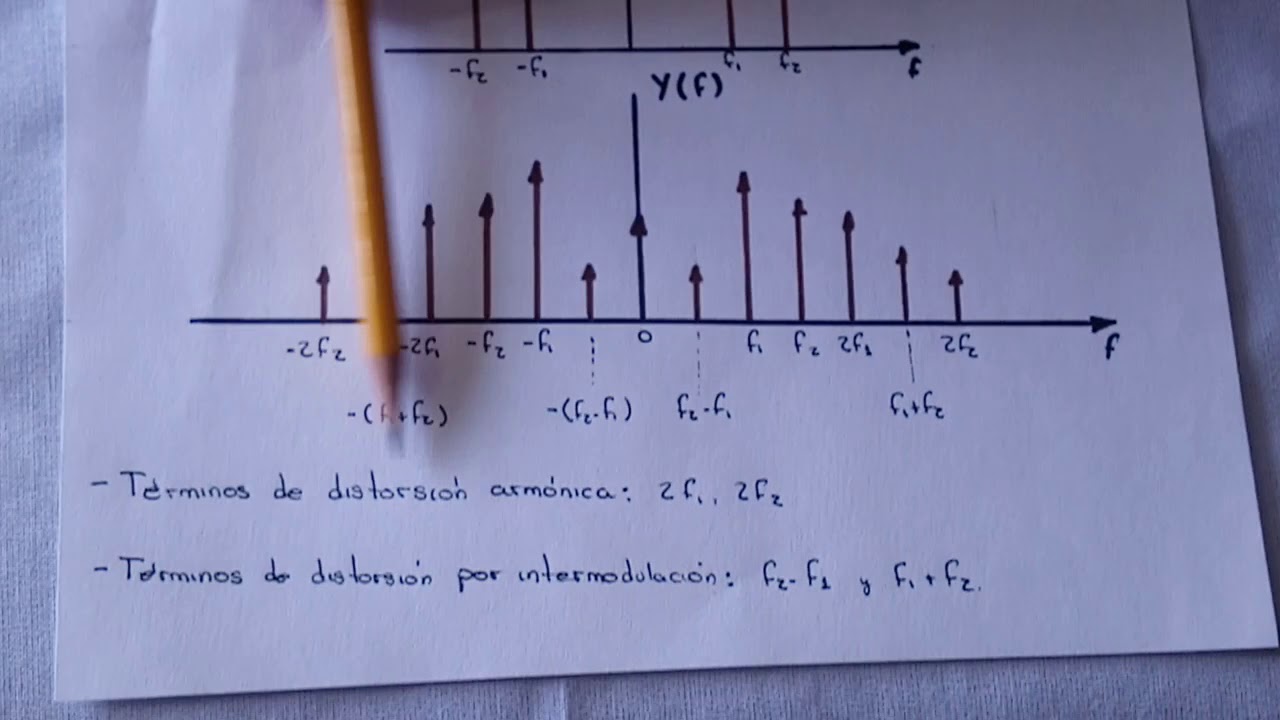 -f₂ -f₁ f₁ f₂ f
Y(f)
-2f₂ -2f₁ -f₂ -f₁ 0 f₁ f₂ 2f₁ 2f₂ f
-(f₁+f₂) -(f₂-f₁) f₂-f₁ f₁+f₂
- Términos de distorsión armónica: 2f₁, 2f₂
- Términos de distorsión por intermodulación: f₂-f₁ y f₁+f₂.